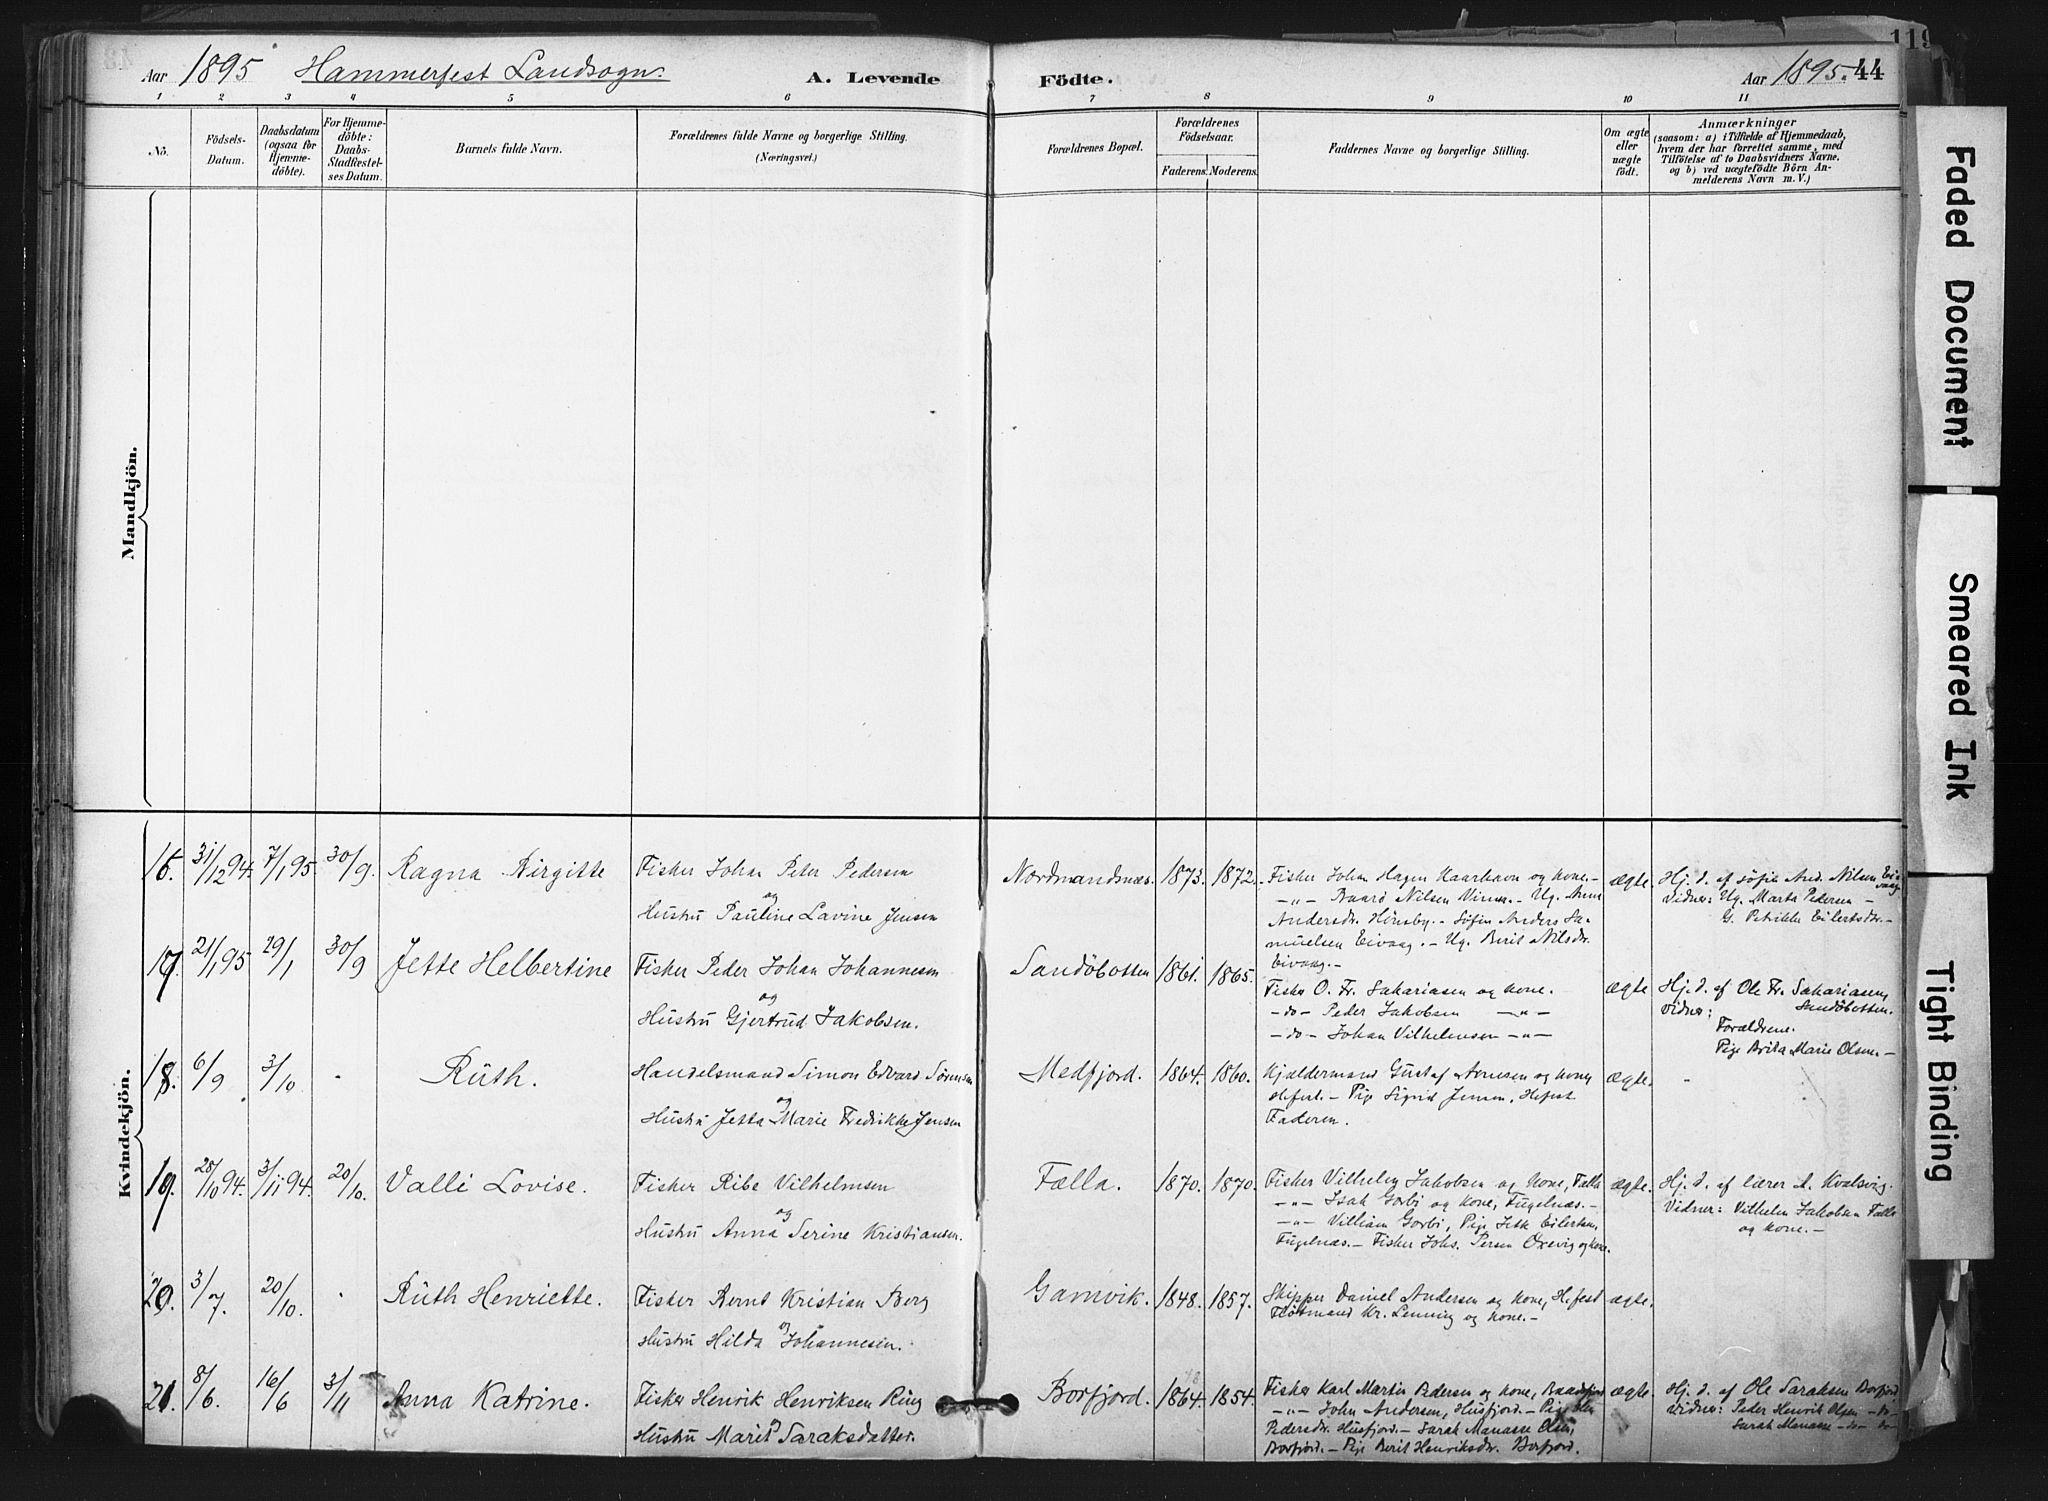 Aar 1895 Hammerfest Landsogn. A. Levende Födte. Aar 1895. 44
119
1 2 3 4 5 6 7 8 9 10 11
No.
Födsels-Datum.
Daabsdatum (ogsaa for Hjemmedöbte).
For Hjemmedöbte: Daabs-Stadfæstelses Datum.
Barnets fulde Navn.
Forældrenes fulde Navne og borgerlige Stilling.
(Næringsvei.)
Forældrenes Bopæl.
Forældrenes Födselsaar.
Faderens. Moderens.
Faddernes Navne og borgerlige Stilling.
Om ægte eller uægte födt.
Anmærkninger
(saasom: a) i Tilfælde af Hjemmedaab,
hvem der har forrettet samme, med
Tilföielse af to Daabsvidners Navne,
og b) ved uægtefödte Börn An-
melderens Navn m. V.)
Mandkjön.
Kvindekjön.
16. 31/12 94. 7/1 95. 30/9. Ragna Birgitte
Fisker Johan Peter Pedersen
og
Hustru Pauline Lavine Jensen
Nordmandsnæs. 1873. 1872.
Fisker Johan Hagen Kaarhavn og kone.-
-"- Baard Nilsen
Andersdr. Hönsby.- Söfin Anders Sa-
muelsen Eivaag.- Ug. Berit Nilsdr.
Eivaag.-
ægte
Hj. d. af Söfin And. Nilsen Eivaag
Vidner: Ug. Marta Pedersen -
G. Petrikke Eilertsdr.-
17. 21/1 95 29/1 30/9 Jette Helbertine
Fisker Peder Johan Johannesen
og
Hustru Gjertrud Jakobsen.
Sandöbotten 1861. 1865.
Fisker O. Fr. Sakariasen og kone.
-do- Peder Jakobsen -"-
-do- Johan Vilhelmsen -"-
ægte
Hj. d. af Ole Fr. Sakariasen,
Sandöbotten.
Vidner:
Forældrene.
Pige Brita Marie Olsen.-
18. 6/9 3/10 - Ruth.
Handelsmand Simon Edvard Sörensen
og
Hustru Jetta Marie Fredrikke Jensen
Medfjord. 1864. 1860.
Kjældermand Gustaf Arnesen og kone,
Hfest.- Pige Sigrid Jensen, Hfest
Faderen.
ægte. -
19. 28/10 94. 3/11 94. 20/10. Valli Lovise.
Fisker Ribe Vilhelmsen
og
Hustru Anna Serine Kristiansen.
Fælla. 1870. 1870.
Fisker Vilhelm Jakobsen og kone, Fælla
-"- Isak Gorbi og kone, Fuglenæs.-
-"- Villiam Gorbi, Pige Eilertsen,
Fuglenæs.- Fisker Johs. Persen Oxevig og kone.
ægte.
Hj. d. af lærer A. Kvalsvig.
Vidner: Vilhelm Jakobsen Fælla
og kone.-
20. 3/7. 20/10. - Ruth Henriette.
Fisker Bernt Kristian Berg
og
Hustru Hilda Johannesen.
Gamvik. 1848. 1857.
Skipper Daniel Andersen og kone, Hfest
Flötmand Kr. Lenning og kone.-
ægte.
21. 8/6. 16/6 3/11 Anna Katrine.
Fisker Henrik Henriksen Ring
Hustru Marit Saraksdatter.
Borfjord. 1864. 1854.
Fisker Karl Martin Pedersen og kone,
-"- John Andersen, Husfjord.- Pige
Pedersdr. Husfjord.- Sarah Manasse Olsen,
Borfjord.- Pige Berit Henriksdr. Borfjord.
ægte.
Hj. d. af Ole Saraksen Borfjord
Vidner: Peder Henrik Olsen -do-
Sarah Manasse -do-
Faded Document
Smeared Ink
Tight Binding